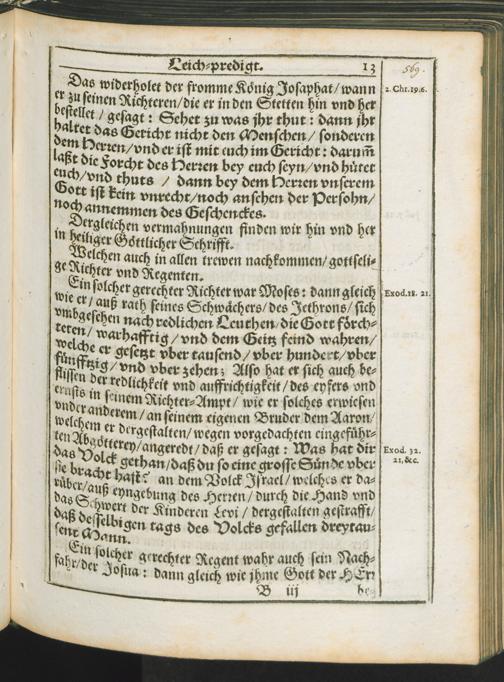 Leich-predigt. 13
569.
Das widerholet der fromme König Josaphat/ wann
2. Chr. 19.6.
er zu seinen Richteren/ die er in den Stetten hin vnd her
bestellet/ gesagt: Sehet zu was jhr thut: dann jhr
haltet das Gericht nicht den Menschen/ sonderen
dem Herren/ vnd er ist mit euch im Gericht: darum̃
laßt die Forcht des Herren bey euch seyn/ vnd hütet
euch/ vnd thuts / dann bey dem Herren vnserem
Gott ist kein vnrecht/ noch ansehen der Persohn/
noch annemmen des Geschenckes.
Dergleichen vermahnungen finden wir hin vnd her
in heiliger Göttlicher Schrifft.
Welchen auch in allen trewen nachkommen/ gottseli-
ge Richter vnd Regenten.
Ein solcher gerechter Richter war Moses: dann gleich
Exod. 18. 21.
wie er/ auß rath seines Schwächers/ des Jethrons/ sich
vmbgesehen nach redlichen Leuthen/ die Gott förch-
teten/ warhafftig/ vnd dem Geitz feind wahren/
welche er gesetzt vber tausend/ vber hundert/ vber
fünfftzig/ vnd vber zehen; Also hat er sich auch be-
flissen der redlichkeit vnd auffrichtigkeit/ des eyfers vnd
ernsts in seinem Richter-Ampt/ wie er solches erwiesen
vnder anderem/ an seinem eigenen Bruder dem Aaron/
welchem er dergestalten/ wegen vorgedachten eingeführ-
ten Abgötterey/ angeredt/ daß er gesagt: Was hat dir
Exod. 32.
das Volck gethan/ daß du so eine grosse Sünde vber
21, &c.
sie bracht hast? an dem Volck Jsrael/ welches er da-
rüber/ auß eyngebung des Herren/ durch die Hand vnd
das Schwert der Kinderen Levi/ dergestalten gestrafft/
daß desselbigen tags des Volcks gefallen dreytau-
sent Mann.
Ein solcher gerechter Regent wahr auch sein Nach-
fahr/ der Josua: dann gleich wie jhme Gott der HErr
B iij be-